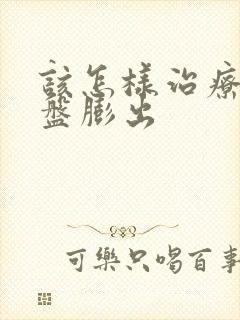 該怎樣治療
盤膨出
可樂只喝百事